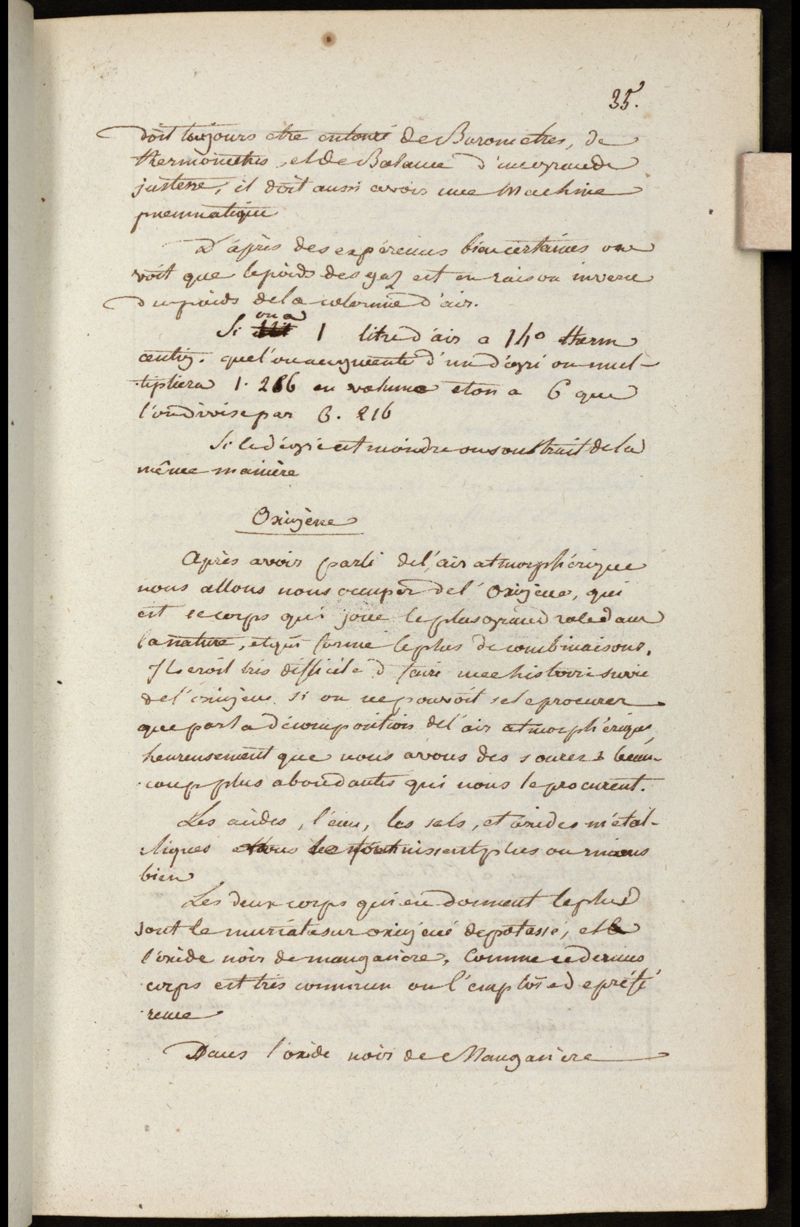 35.
doit toujours etre entouré de Barometres, de
thermometres, et de Balance d'une grande
justesse, il doit aussi avoir une Machine
pneumatique
D'après des expériences bien certaines on
voit que le poids des gaz est en raison inverse
du poids de la colonne d'air.
on a
Si 1 litre d'air a 14° therm
centig. que l'on augmente d'un dégré on mul-
-tipliera 1. 266 en volume et on a 6 que
l'on divise par 3. 216
Si le dégré est moindre on soustrait de la
même manière
Oxigène
Après avoir parlé de l'air atmosphérique
nous allons nous occuper de l'Oxigène, qui
est le corps qui joue le plus grand role dans
la nature, et qui forme le plus de combinaisons.
Il seroit très difficile d faire une histoire suivie
de l'oxigène si on ne pouvoit se le procurer
que par la décomposition de l'air atmosphérique,
heureusement que nous avons des sources beau-
-coup plus abondantes qui nous le procurent.
Les acides, l'eau, les sels, et oxides métal-
-liques nous le fournissent plus ou moins
bien
Les deux corps qui en donnent le plus
sont le muriate sur oxigéné de potasse, et
l'oxide noir de manganèse, Comme ce dernier
corps est très commun on l'emploie de préfé
-rence
Dans l'oxide noir de Manganèse